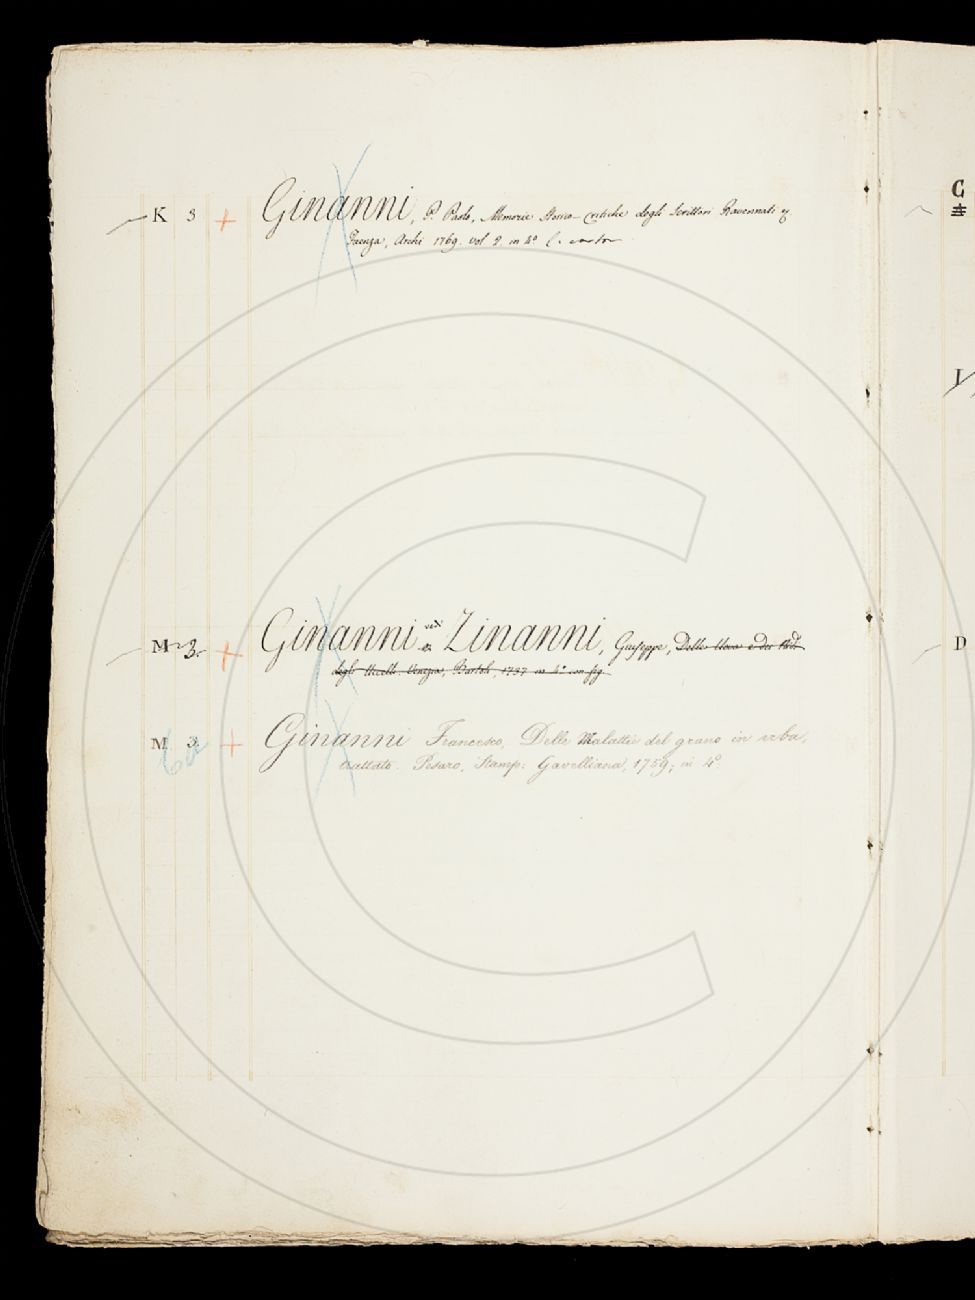 K 3 + Ginanni, P. Paolo, Memorie Storico-critiche degli Scrittori Ravennati
Faenza, Archi 1769. vol 2. in 4°
M 3. + Ginanni Zinanni, Giuseppe, Delle Uova e dei Nidi
degli Uccelli. Venezia, Bartoli, 1737 in 4° con fig.
M 3. + Ginanni Francesco, Delle Malattie del grano in erba,
trattato. Pesaro, Stamp: Gavelliana, 1759; in 4°.
C
D